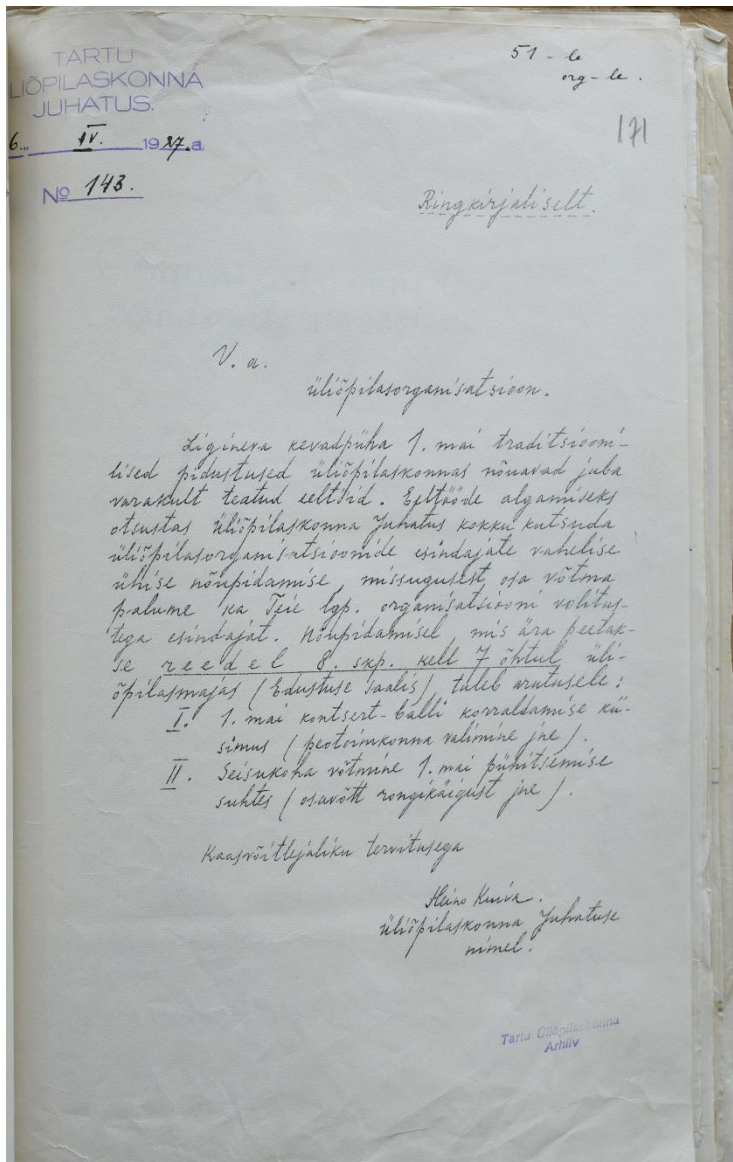 TARTU
LIÕPILASKONNA
JUHATUS.
6. IV. 1927.a
№ 143.
51 - le
org - le.
171
Ringkirjaliselt.
V. a.
üliõpilasorganisatsioon.
Ligineva kevadpüha 1. mai traditsiooni-
lised pidustused üliõpilaskonnas nõuavad juba
varakult teatud eeltöid. Eeltööde algamiseks
otsustas üliõpilaskonna Juhatus kokku kutsuda
üliõpilasorganisatsioonide esindajate vahelise
ühise nõupidamise, missugusest osa võtma
palume ka Teie lgp. organisatsiooni volitus-
tega esindajat. Nõupidamisel, mis ära peetak-
se reedel 8. skp. kell 7 õhtul, üli-
õpilasmajas (Edustuse saalis) tuleb arutusele:
I. 1. mai kontsert-balli korraldamise kü-
simus (peotoimkonna valimine jne).
II. Seisukoha võtmine 1. mai pühitsemise
suhtes (osavõtt rongikäigust jne).
Kaasvõitlejaliku tervitusega
Heino Kuiva.
üliõpilaskonna Juhatuse
nimel.
Tartu Üliõpilaskonna
Arhiiv